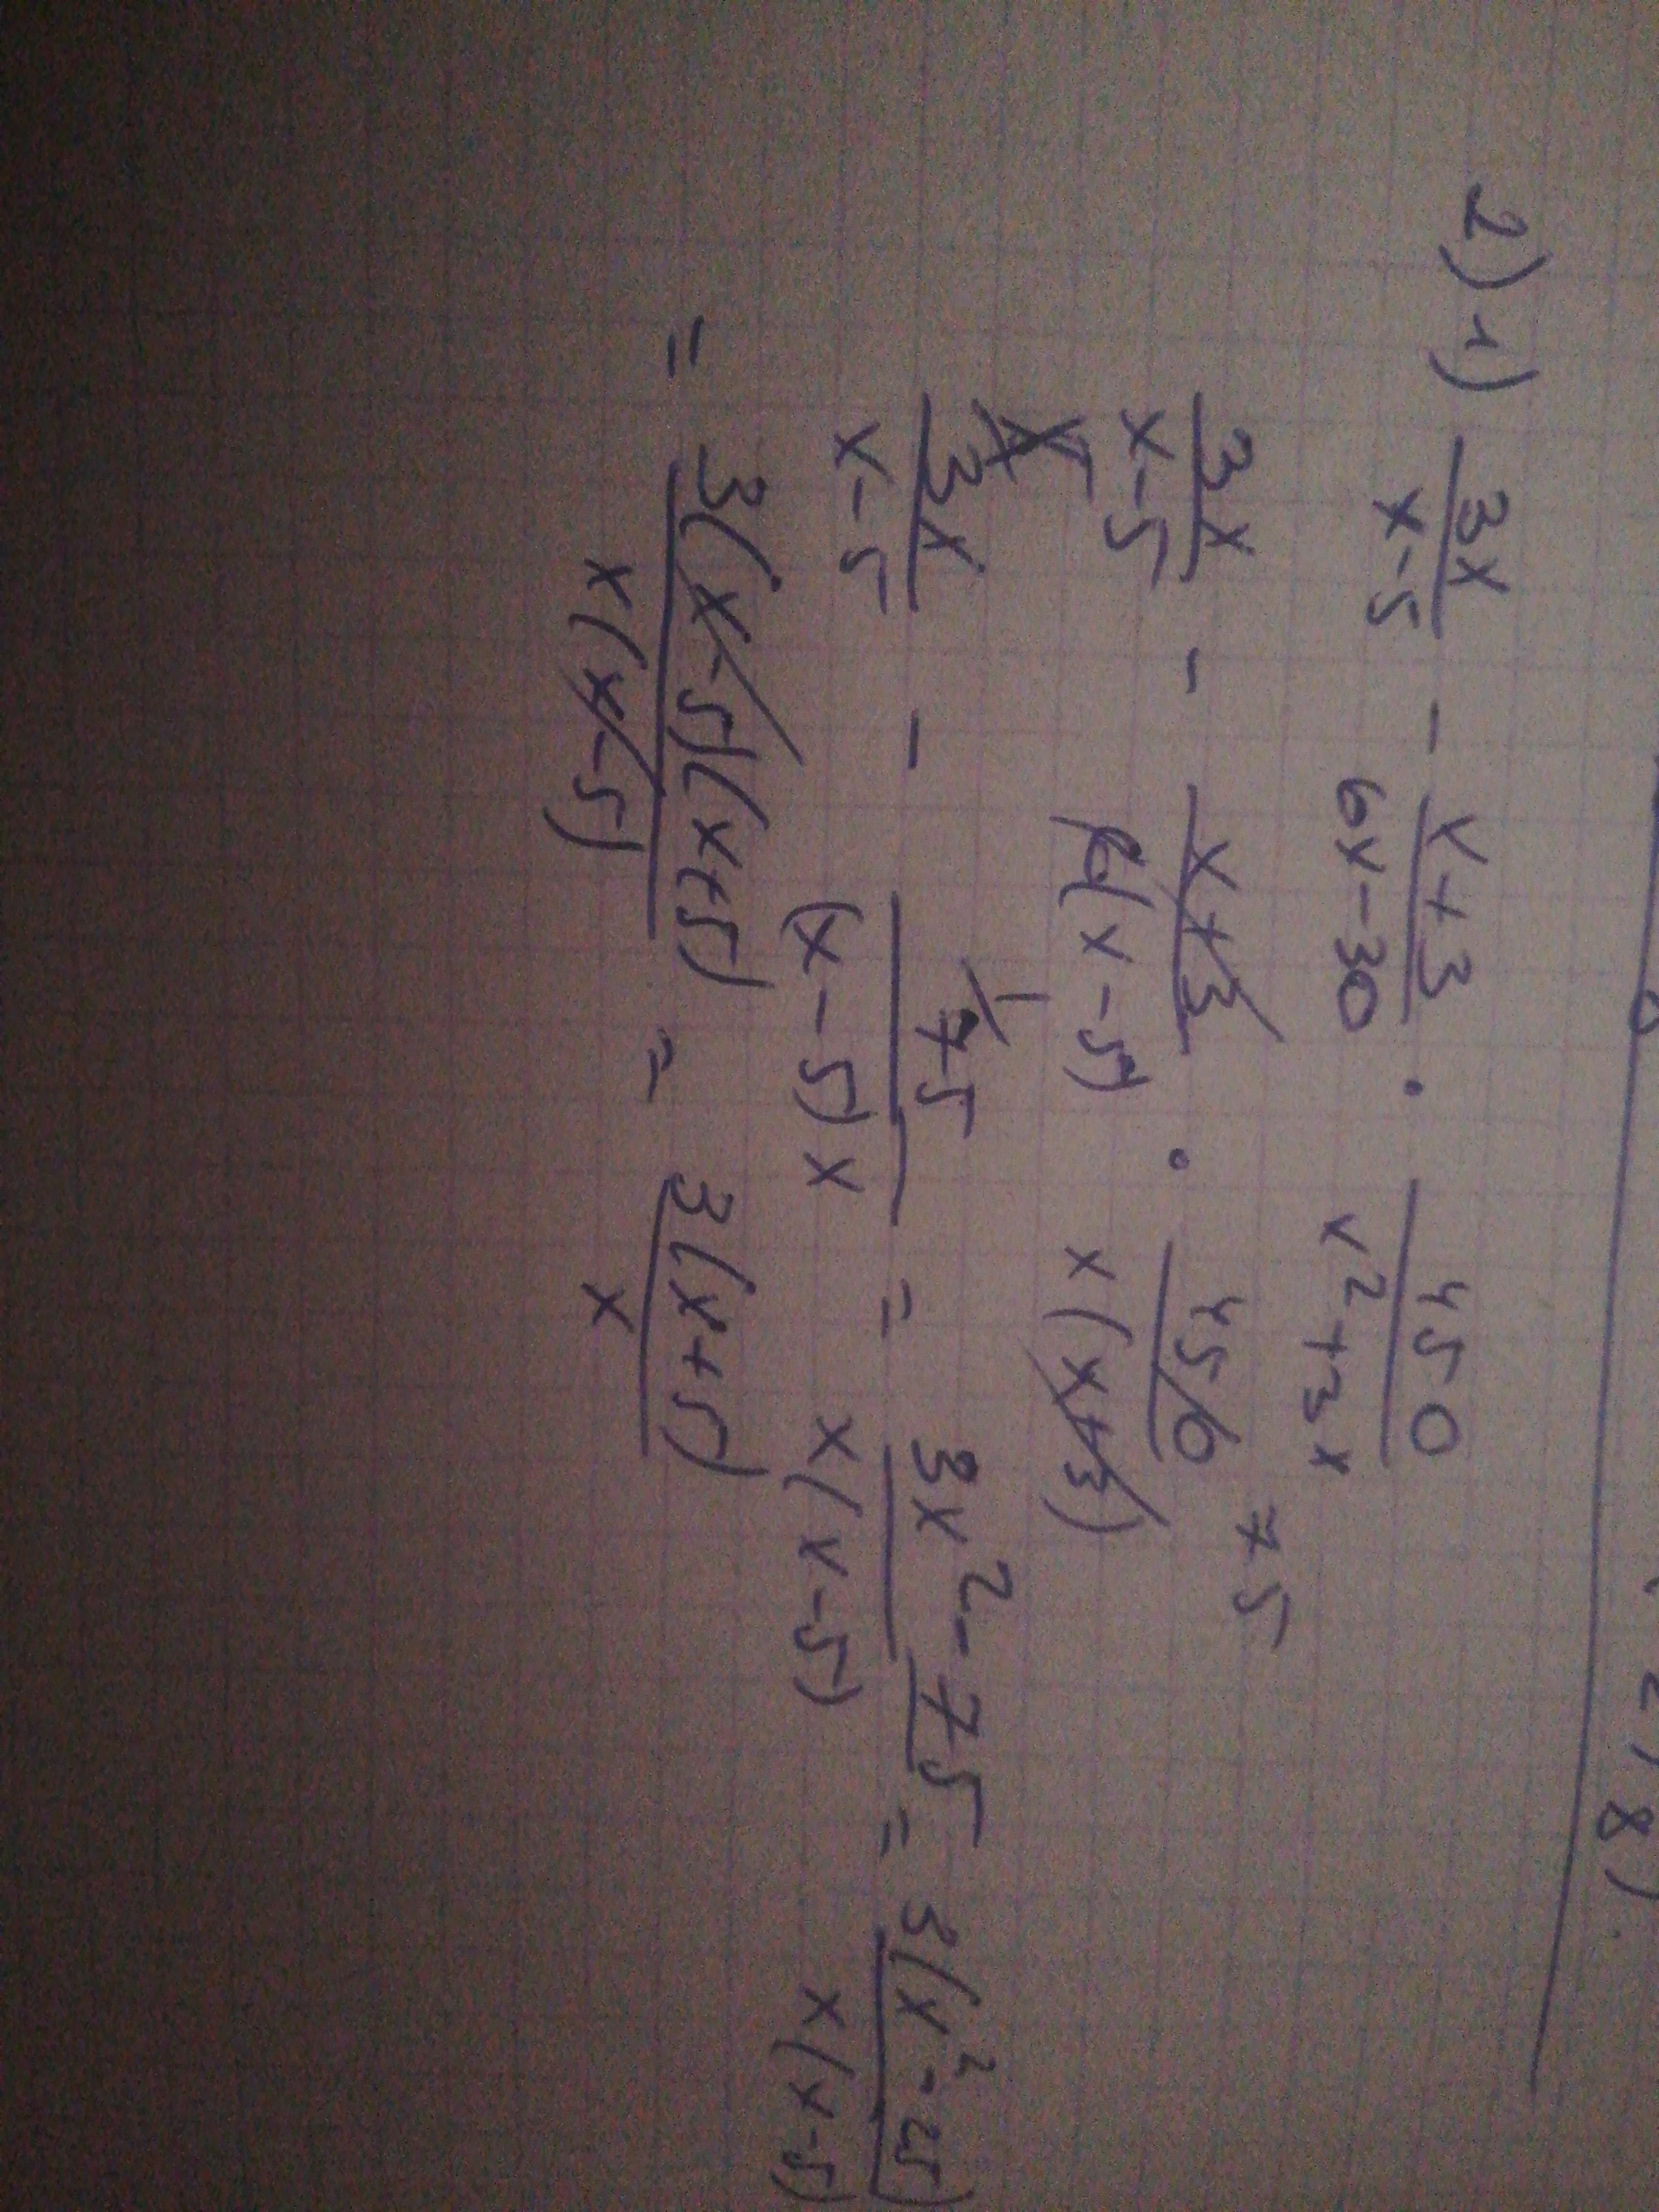 2) 8)
2) 1) 3x/(x-5) - (x+3)/(6x-30) · 450/(x²+3x)
3x/(x-5) - (x+3)/(6(x-5)) · 450/(x(x+3)) 75
3x/(x-5) - 75/((x-5)x) = (3x²-75)/(x(x-5)) = 3(x²-25)/(x(x-5))
= 3(x-5)(x+5)/(x(x-5)) = 3(x+5)/x